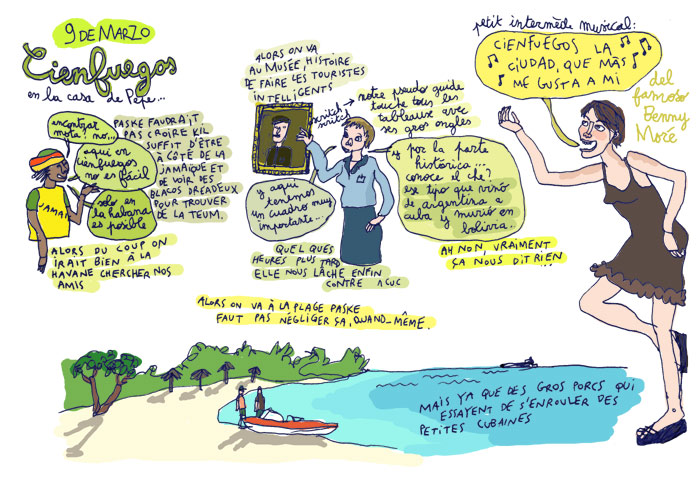 9 DE MARZO
Cienfuegos
en la casa de Pepe...
encontrar
mota! no...
aqui en
cienfuegos
no en fácil
solo en
la habana
es posible
JAMAI
PASKE FAUDRAIT
PAS CROIRE KIL
SUFFIT D'ÊTRE
À CÔTÉ DE LA
JAMAÏQUE ET
DE VOIR LES
BLACOS DREADEUX
POUR TROUVER
DE LA TEUM.
ALORS DU COUP ON
IRAIT BIEN À LA
HAVANE CHERCHER NOS
AMIS
ALORS ON VA
AU MUSÉE, HISTOIRE
DE FAIRE LES TOURISTES
INTELLIGENTS
scritch
scritch
notre pseudo guide
touche tous les
tableaux avec
ses gros ongles
y aqui
tenemos
un cuadro muy
importante...
y por la parte
histórica...
conoce el che?
ese tipo que vino
de argentina a
cuba y murió en
bolivia..
QUELQUES
HEURES PLUS TARD
ELLE NOUS LÂCHE ENFIN
CONTRE 1 CUC
AH NON, VRAIMENT
ÇA NOUS DIT RIEN...
petit intermède musical:
CIENFUEGOS LA
CIUDAD, QUE MÁS
ME GUSTA A MI
del
famoso
Benny
Moré
ALORS ON VA À LA PLAGE PASKE
FAUT PAS NÉGLIGER ÇA, QUAND-MÊME.
MAIS YA QUE DES GROS PORCS QUI
ESSAYENT DE S'ENROULER DES
PETITES CUBAINES